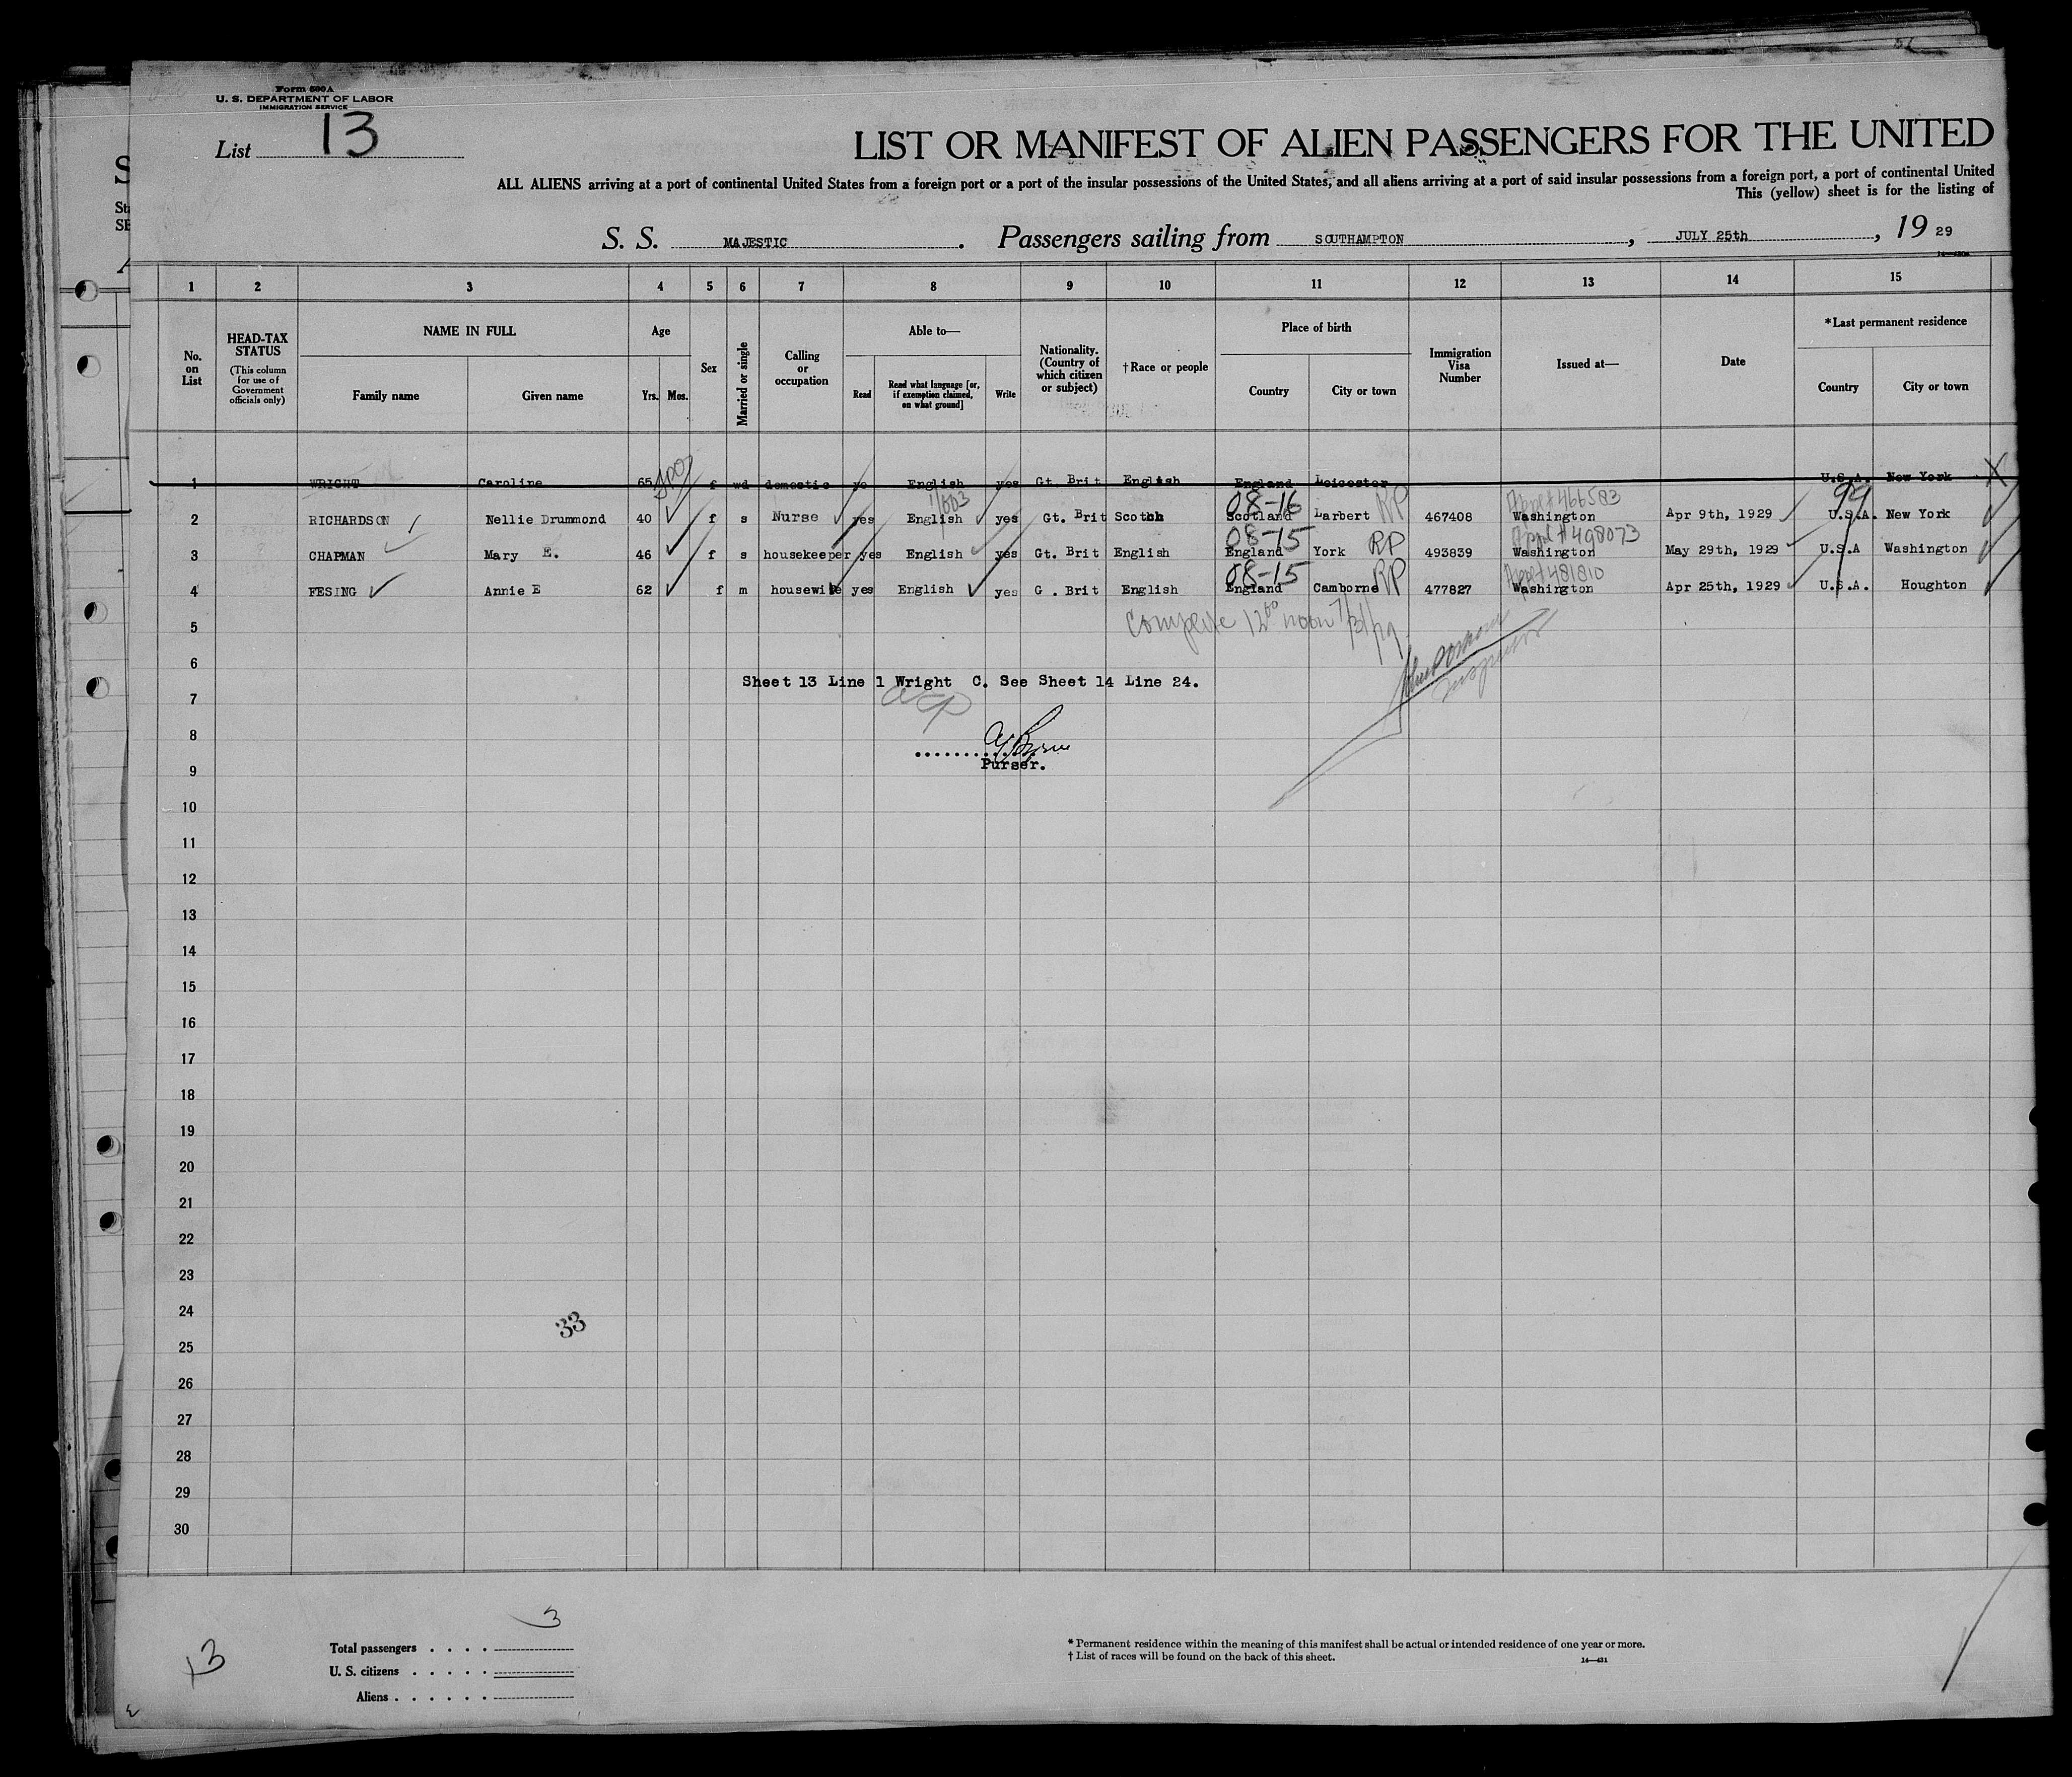 Form 500A
U. S. DEPARTMENT OF LABOR
IMMIGRATION SERVICE
List 13
LIST OR MANIFEST OF ALIEN PASSENGERS FOR THE UNITED
ALL ALIENS arriving at a port of continental United States from a foreign port or a port of the insular possessions of the United States, and all aliens arriving at a port of said insular possessions from a foreign port, a port of continental United
This (yellow) sheet is for the listing of
S. S. MAJESTIC. Passengers sailing from SOUTHAMPTON, JULY 25th, 19 29
1 2 3 4 5 6 7 8 9 10 11 12 13 14 15
No. on List
HEAD-TAX STATUS
(This column for use of Government officials only)
NAME IN FULL
Family name Given name
Age
Yrs. Mos.
Sex
Married or single
Calling or occupation
Able to—
Read
Read what language [or, if exemption claimed, on what ground]
Write
Nationality. (Country of which citizen or subject)
†Race or people
Place of birth
Country City or town
Immigration Visa Number
Issued at—
Date
*Last permanent residence
Country City or town
1 WRIGHT Caroline 65 f wd domestic English yes Gt. Brit English England Leicester U.S.A. New York
08-16 RP 99
2 RICHARDSON Nellie Drummond 40 f s Nurse yes English yes Gt. Brit Scotch Scotland Larbert 467408 Washington Apr 9th, 1929 U.S.A. New York
08-15 RP 498073
3 CHAPMAN Mary E. 46 f s housekeeper yes English yes Gt. Brit English England York 493839 Washington May 29th, 1929 U.S.A Washington
08-15 RP 481810
4 FESING Annie E 62 f m housewife yes English yes G . Brit English England Camborne 477827 Washington Apr 25th, 1929 U.S.A. Houghton
5
6
Sheet 13 Line 1 Wright C. See Sheet 14 Line 24.
7
8
Purser.
9
10
11
12
13
14
15
16
17
18
19
20
21
22
23
24
33
25
26
27
28
29
30
3
13
Total passengers . . . .
U. S. citizens . . . . .
Aliens . . . . . .
* Permanent residence within the meaning of this manifest shall be actual or intended residence of one year or more.
† List of races will be found on the back of this sheet.
14—431